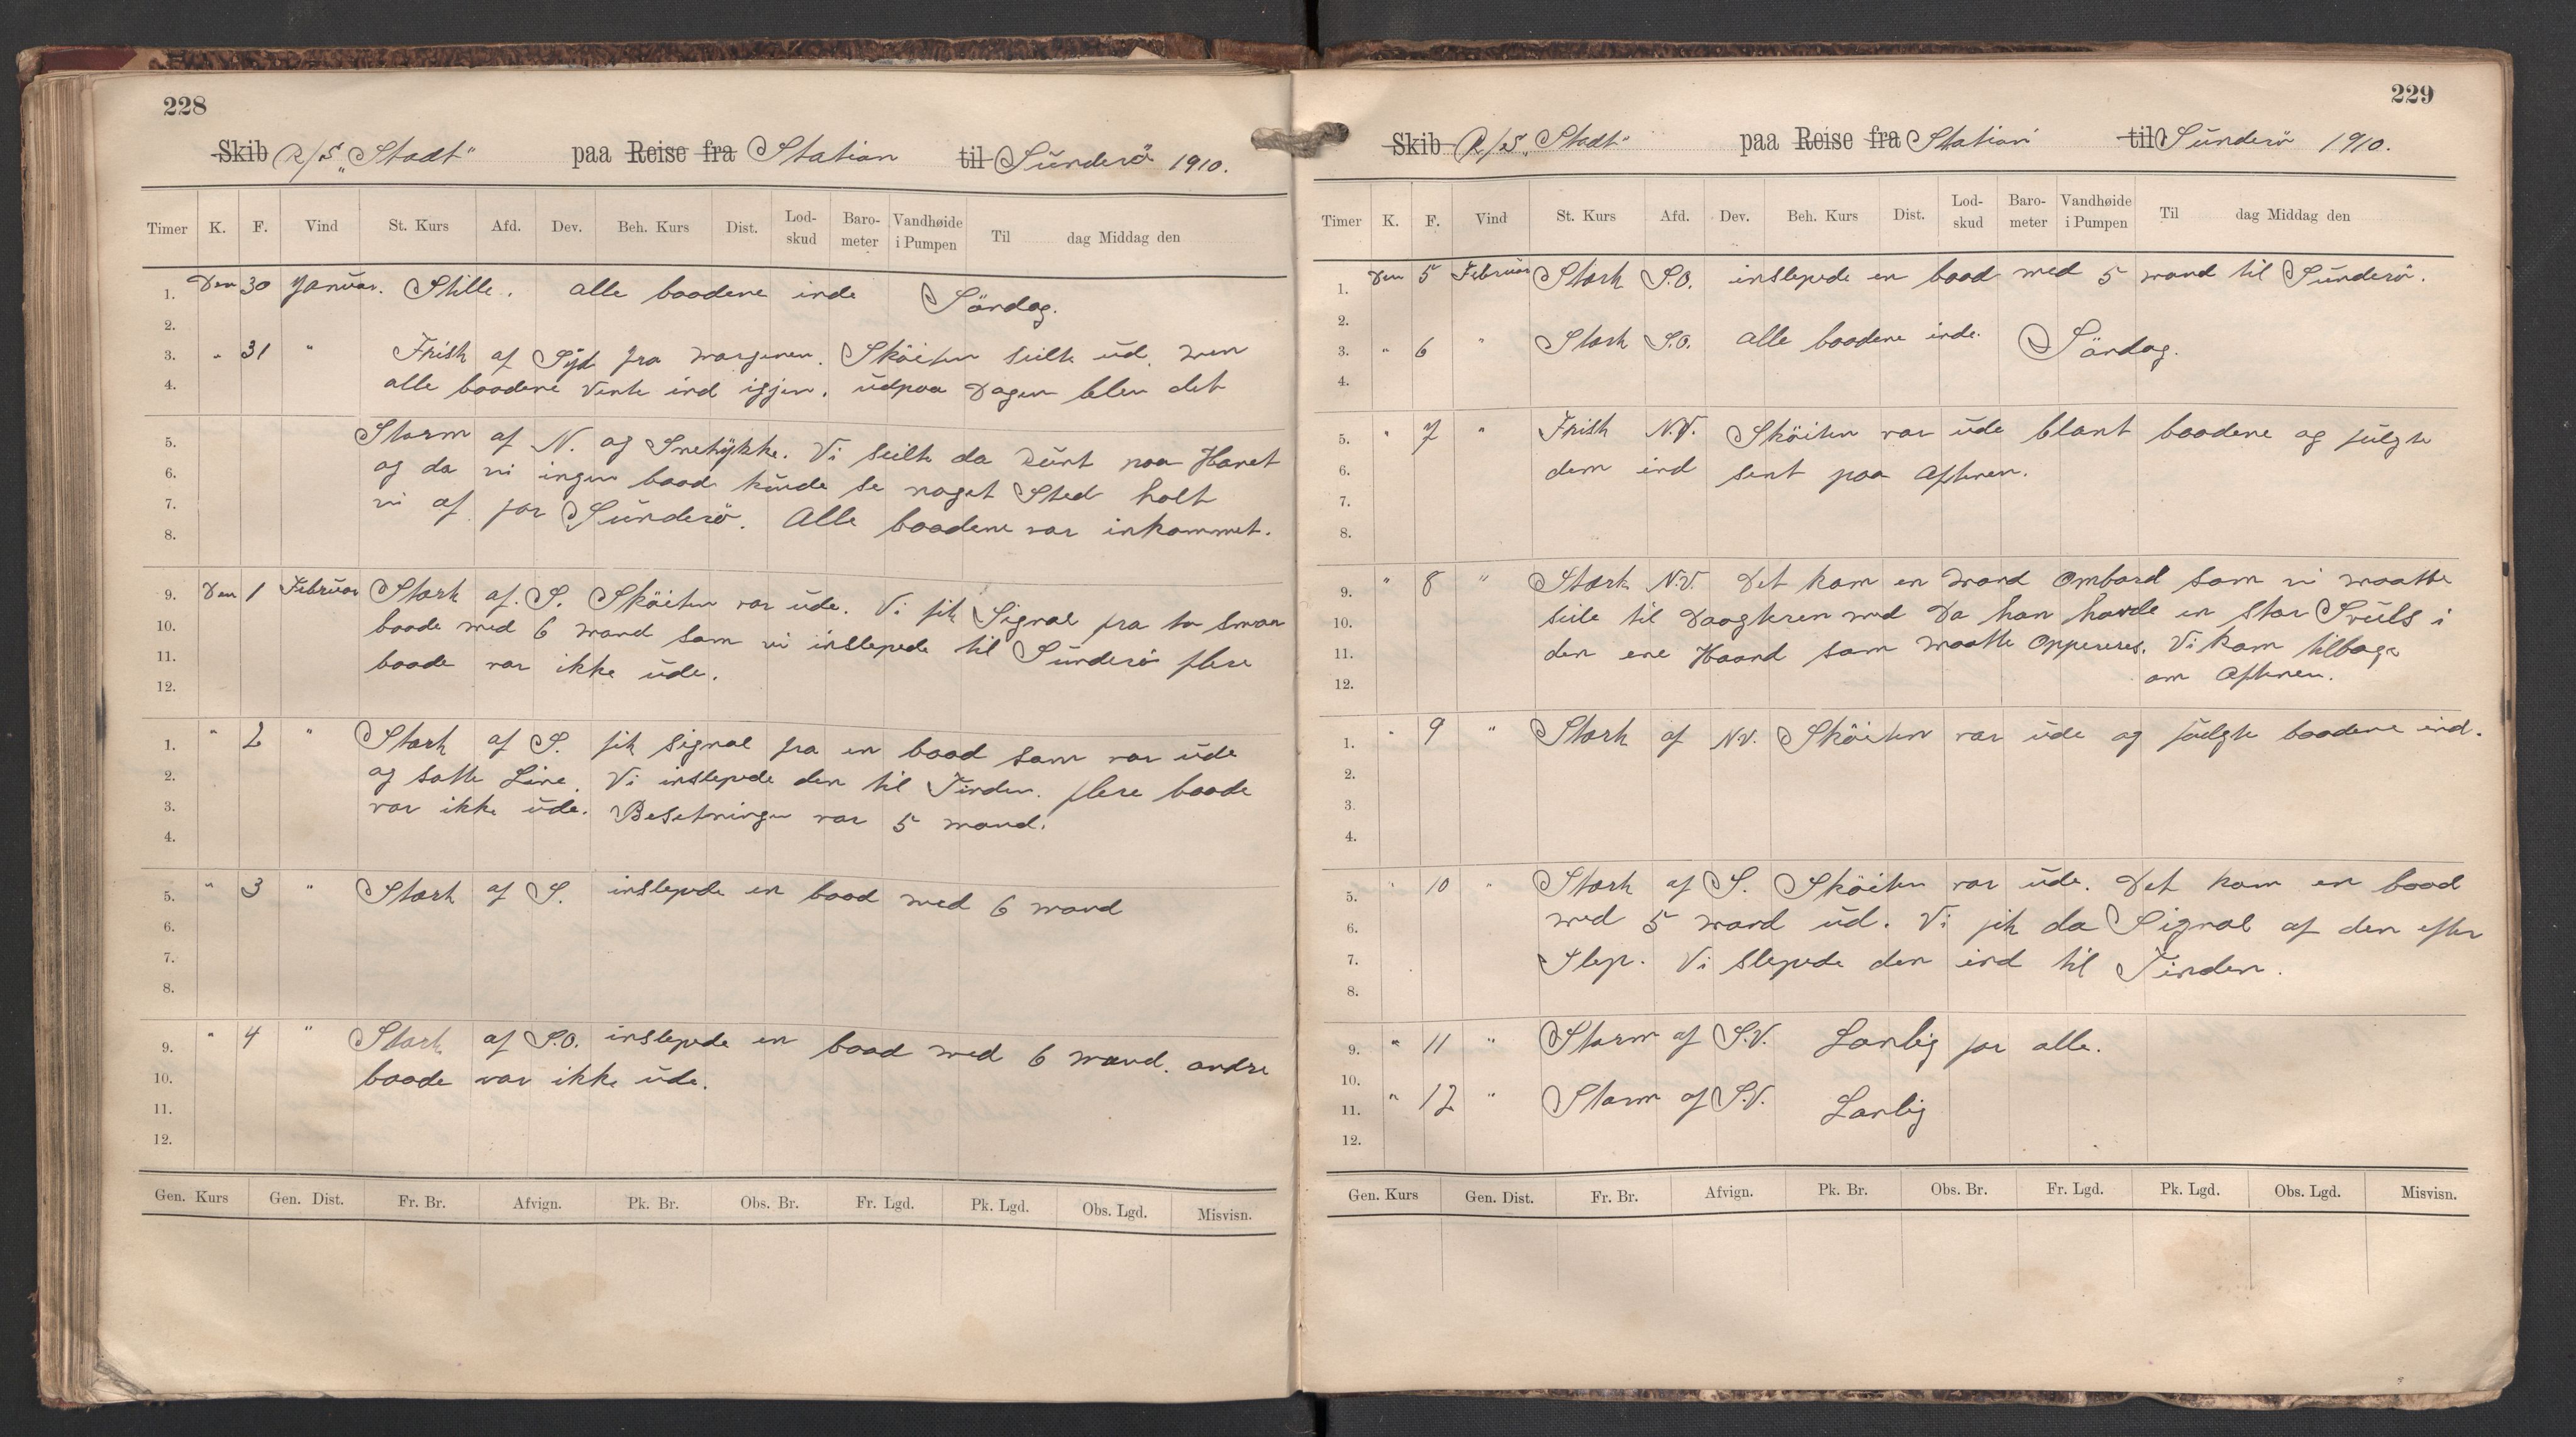 228
Skib R/S „Stadt" paa Reise fra Station til Sunderö 1910.
Timer K. F. Vind St. Kurs Afd. Dev. Beh. Kurs Dist. Lod-skud Baro-meter Vandhøide i Pumpen Til dag Middag den
1. Den 30 Januar. Stille. alle baadene inde Söndag.
2.
3. " 31 " Frisk af Syd fra margenen. Sköiten seilte ud. men
4. alle baadene vente ind igjen. udpaa Dagen blev det
5. Storm af N. og Snetykke. Vi seilte da rundt paa Havet
6. og da vi ingen baad kunde se noget Sted holt
7. vi af for Sunderö. Alle baadene var inkommet.
8.
9. Den 1 Februar Stærk af S. Sköiten var ude. Vi fik Signal fra to smaa
10. baade med 6 mand som vi inslepede til Sunderö flere
11. baade var ikke ude.
12.
1. " 2 " Stærk af S. fik signal fra en baad som var ude
2. og satte Line. Vi inslepede den til Tinden. flere baade
3. var ikke ude. Besetningen var 5 mand.
4.
5. " 3 " Stærk af S. inslepede en baad med 6 mand
6.
7.
8.
9. " 4 " Stærk af S.O. inslepede en baad med 6 mand. andre
10. baade var ikke ude.
11.
12.
Gen. Kurs Gen. Dist. Fr. Br. Afvign. Pk. Br. Obs. Br. Fr. Lgd. Pk. Lgd. Obs. Lgd. Misvisn.
229
Skib R/S „Stadt" paa Reise fra Station til Sunderö 1910.
Timer K. F. Vind St. Kurs Afd. Dev. Beh. Kurs Dist. Lod-skud Baro-meter Vandhøide i Pumpen Til dag Middag den
1. Den 5 Februar Stærk S.O. inslepede en baad med 5 mand til Sunderö.
2.
3. " 6 " Stærk S.O. alle baadene inde. Söndag.
4.
5. " 7 " Frisk N.V. Sköiten var ude blant baadene og fulgte
6. dem ind sent paa Aftenen.
7.
8.
9. " 8 " Stærk N.V. Det kom en mand Ombord som vi maatte
10. seile til Daagteren med Da han havde en stor Svuls i
11. den ene Haand som maatte Oppereres. Vi kom tilbage
12. om Aftenen.
1. " 9 " Stærk af NV. Sköiten var ude og fulgte baadene ind.
2.
3.
4.
5. " 10 " Stærk af S. Sköiten var ude. Det kom en baad
6. med 5 mand ud. Vi fik da Signal af den efter
7. Slep. Vi slepede den ind til Tinden.
8.
9. " 11 " Storm af S.V. Lanlig for alle.
10.
11. " 12 " Storm af S.V. Lanlig
12.
Gen. Kurs Gen. Dist. Fr. Br. Afvign. Pk. Br. Obs. Br. Fr. Lgd. Pk. Lgd. Obs. Lgd. Misvisn.